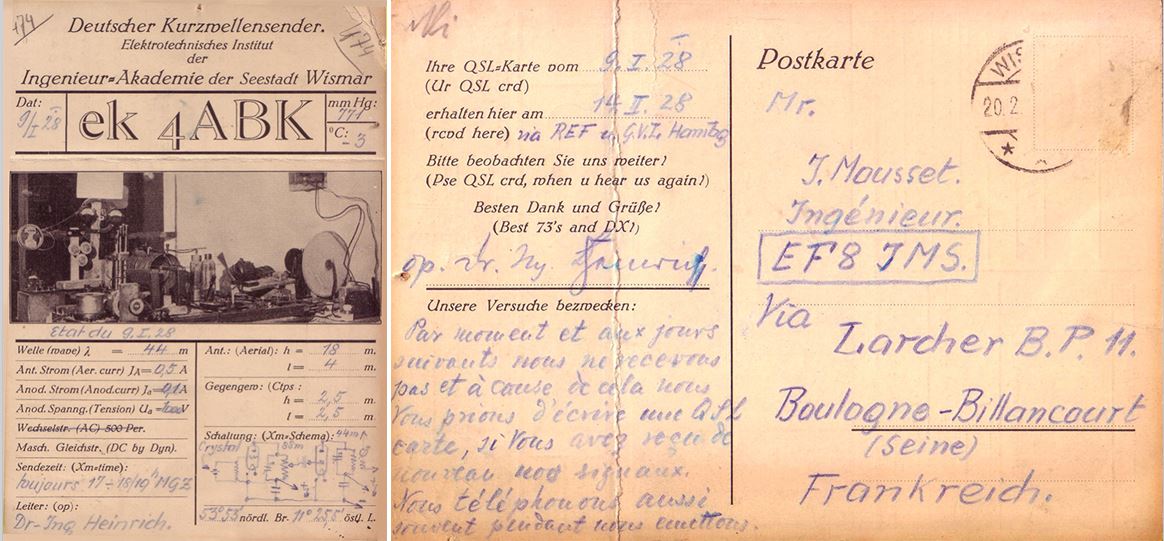 174
174
Deutscher Kurzwellensender.
Elektrotechnisches Institut
der
Ingenieur=Akademie der Seestadt Wismar
Dat:
9/I 28
ek 4ABK
mm Hg:
771
°C:
- 3
Etat du 9. I. 28
Welle (wave) λ = 44 m
Ant. Strom (Aer. curr) JA = 0,5 A
Anod. Strom (Anod. curr) Ja = 0,1 A
Anod. Spanng. (Tension) Ua = V
Wechselstr. (AC) 500 Per.
Masch. Gleichstr. (DC by Dyn).
Sendezeit: (Xm=time):
toujours 17 ÷ 18/19 h MGZ
Leiter: (op):
Dr-Ing Heinrich.
Ant.: (Aerial): h = 18 m.
l = 4 m.
Gegengew: (Ctps:
h = 2,5 m.
l = 2,5 m.
Schaltung: (Xm=Schema): 44m
Crystal
88m
53°53' nördl. Br. 11° 25,5 östl. L.
Ihre QSL=Karte vom 9. I. 28
(Ur QSL crd)
erhalten hier am 14. II. 28
(rcvd here) via REF u. G.V.I. Hambg
Bitte beobachten Sie uns weiter?
(Pse QSL crd, when u hear us again?)
Besten Dank und Grüße?
(Best 73's and DX?)
op. Dr. Ing. Heinrich.
Unsere Versuche bezwecken:
Par moment et aux jours
suivants nous ne recevons
pas et à cause de cela nous
Vous prions d'écrire une QSL
carte, si Vous avez reçu de
nouveau nos signaux.
Nous téléphonons aussi
souvent pendant nous emettons.
Postkarte
WIS
20.2
Mr.
J. Mousset.
Ingénieur.
EF8 JMS.
Via
Larcher B.P. 11.
Boulogne-Billancourt
(Seine)
Frankreich.